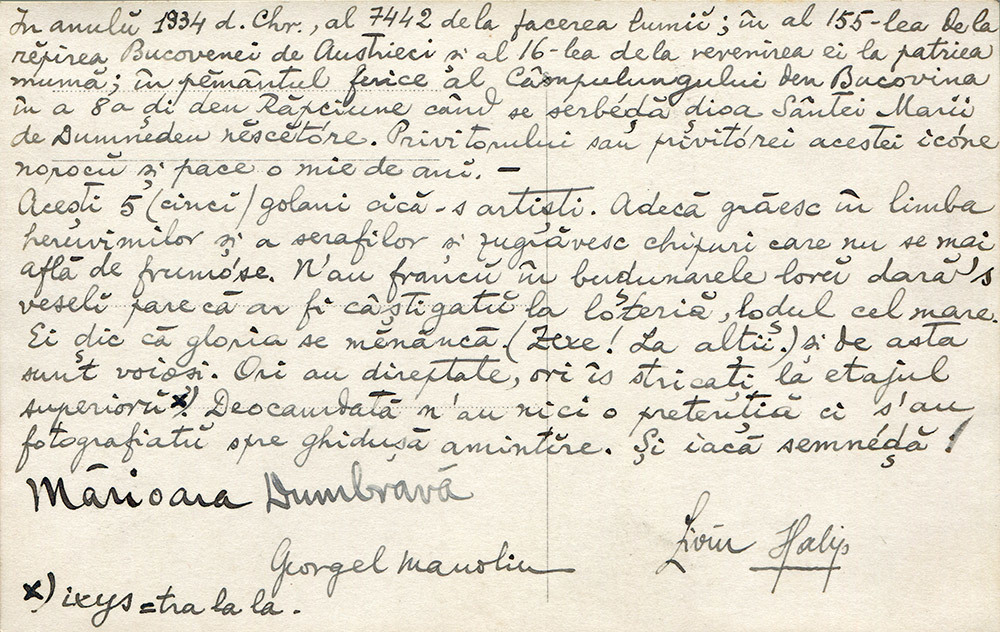 In anulŭ 1934 d. Chr., al 7442 dela facerea lumii; în al 155-lea dela
rĕpirea Bucovenei de Austrieci și al 16-lea dela revenirea ei la patriea
mumă; în pĕmântul ferice al Câmpulungului den Bucovina
în a 8a ḑi den Răpciune când se serbéḑă ḑioa Sântei Marii
de Dumneḑeu născĕtóre. Privitorului sau privitórei acestei icóne
norocŭ și pace o mie de ani. -
Acești 5 (cinci) golani cică-s artiști. Adecă grăesc în limba
heruvimilor și a serafilor și zugrăvesc chipuri care nu se mai
află de frumóse. N'au francŭ în buḑunarele lorŭ dară's
veseli parecă ar fi câștigatŭ la loteriă, loḑul cel mare.
Ei ḑic că gloria se mĕnâncă. (Zexe! La alții.) și de asta
sunt voioși. Ori au direptate, ori îs stricați la etajul
superiorŭ x)! Deocamdată n'au nici o pretenția ci s'au
fotografiatŭ spre ghidușă amintire. Și iacă semnéḑă!
Mărioara Dumbravă
Liviu Halip
Georgel Manoliu
x) ixys = tra la la.